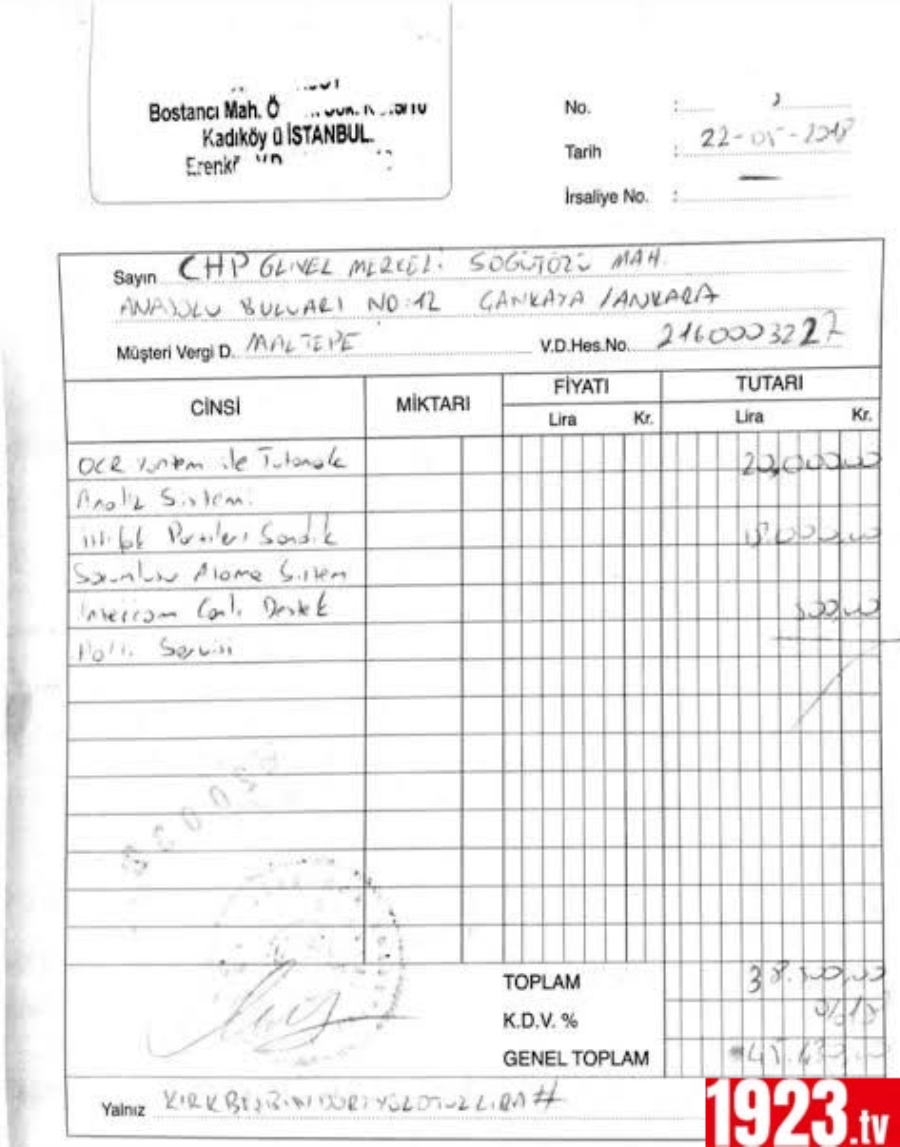 Bostancı Mah. Ö
Kadıköy ü İSTANBUL.
No. :
Tarih : 22-05-2018
İrsaliye No. : —
Sayın CHP GENEL MERKEZİ SÖĞÜTÖZÜ MAH.
ANADOLU BULVARI NO:12 ÇANKAYA / ANKARA
Müşteri Vergi D. MALTEPE V.D.Hes.No. 2160003227
CİNSİ MİKTARI FİYATI TUTARI
Lira Kr. Lira Kr.
OCR Yöntem ile Tutanak 20,000,00
Analiz Sistemi
İttifak Partileri Sandık 18.000,00
Sorumlusu Atama Sistem
Intercom Canlı Destek 500,00
Servisi
TOPLAM 38.500,00
K.D.V. % %18
GENEL TOPLAM 45.430,00
Yalnız KIRKBEŞBİNDÖRTYÜZOTUZLİRA #
1923.tv